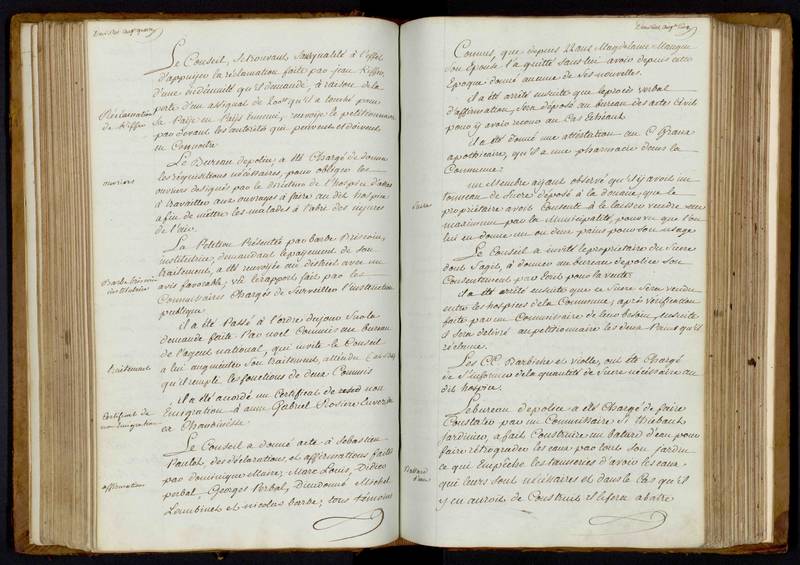 Le Conseil, se trouvant sans qualité à l'effet
d'appuyer la réclamation faite par jean Kiffer,
d'une indemnité qu'il demande, à raison de la
perte d'un assignat de 200ₗₗ qu'il a touché pour
sa Paÿe en Païs ennemi, renvoÿe le petitionnaire
pardevant les autorités qui peuvent et doivent
en Connoitre
Réclamation
de Kiffer
Le Bureau de police, a été Chargé de donner
les réquisitions nécessaires, pour obliger les
ouvriers designés par le directeur de l'hospice
à travailler aux ouvrages à faire au dit hospice
afin de mettre les malades à l'abri des injures
de l'air.
ouvriers
La Pétition Présentée par barbe Briscoin,
institutrice, demandant le payement de son
traitement, a été renvoÿée au district avec un
avis favorable, vû le rapport fait par les
Commissaires Chargés de Surveiller l'instruction
publique
Barbe Briscoin
institutrice
il a été Passé à l'ordre du jour sur la
demande faite Par noel Commis au bureau
de l'agent national, qui invite le Conseil
à lui augmenter son traitement, attendu
qu'il remplit les fonctions de deux Commis
traitement
il a été acordé un Certificat de non
Emigration à anne Gabriel Rosiere
et Chardinesse
Certificat de
non émigration
Le Conseil a donné acte à Sebastien
Paulet, des déclarations, et affirmations faites
par dominique Maire; Marc Louis, Didier
Georges Dieudonné Michel
et nicolas barbe, tous témoins
affirmation
Connus, que depuis 12 ans Magdelaine Mangin
son Epouse l'a quitté sans lui avoir depuis cette
Epoque donné aucune de ses nouvelles.
il a été arrété ensuite que le procès verbal
d'affirmation, sera déposé au bureau des actes Civils
pour y avoir recours au Cas Echéant
il a été donné une attestation au C.
apothicaire, qu'il a une pharmacie dans la
Commune.
un Membre ayant observé qu'il y avoit un
tonneau de Sucre déposé à la douane, que le
propriétaire avoit Consenti à le laisser vendre au
maximum par la Municipalité, pourvu que l'on
lui en donne un ou deux pains pour son usage
Sucre
Le Conseil a invité le propriétaire du Sucre
dont s'agit, à donner au bureau de police son
Consentement par Ecrit pour la vente.
il a été arrété ensuite que ce Sucre sera vendu
entre les hospices de la Commune, après vérification
faite par un Commissaire de leur besoin, ensuite
il sera délivré au petitionnaire les deux Pains qu'il
réclame.
Les CC. Barbiche et violle, ont été Chargés
de s'informer de la quantité de Sucre nécessaire au
dit hospice.
Le bureau de police a été Chargé de faire
Constater par un Commissaire si Thiebaut
jardinier, a fait Construire un batard d'eau pour
faire rétrograder les eaux par tout son jardin
ce qui Empêche les tanneries d'avoir les eaux
qui leurs sont nécessaires et dans le Cas qu'il
y en auroit de Construit il le fera abatre
Battard
d'eau